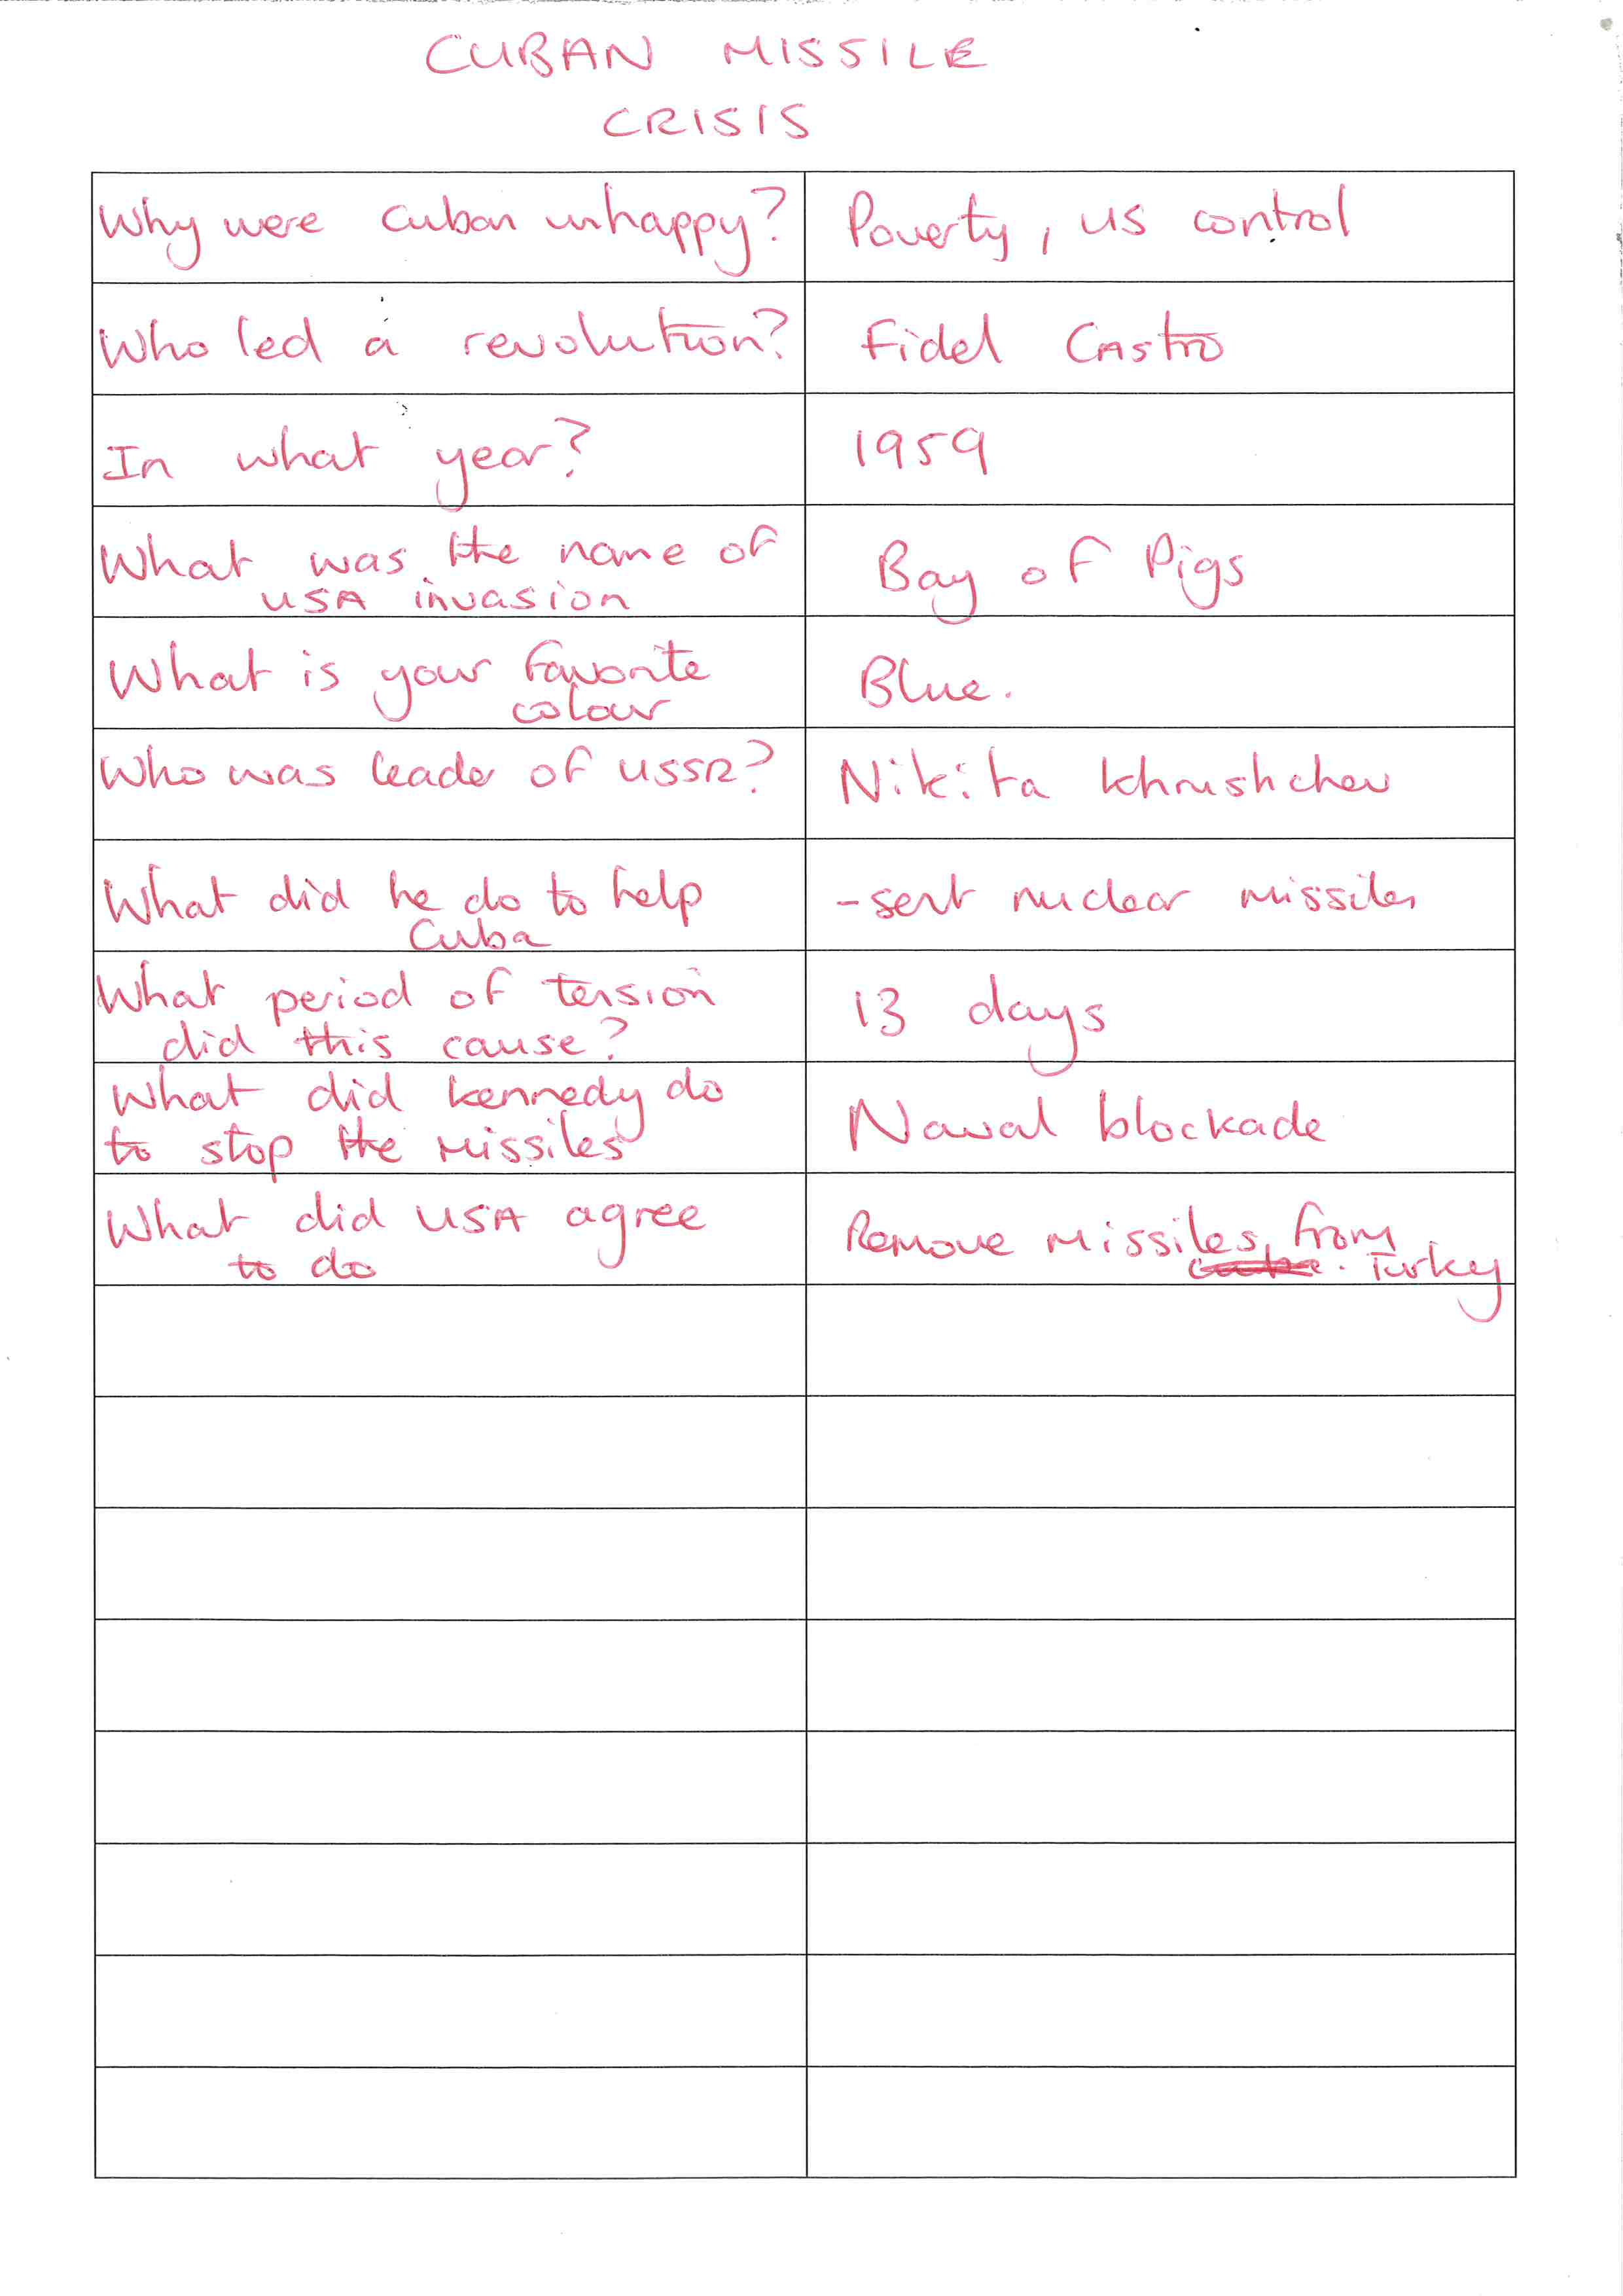 CUBAN MISSILE
CRISIS
Why were Cuban unhappy?
Poverty, US control
Who led a revolution?
Fidel Castro
In what year?
1959
What was the name of
USA invasion
Bay of Pigs
What is your favorite
colour
Blue.
Who was leader of USSR?
Nikita Khrushchev
What did he do to help
Cuba
- sent nuclear missiles
What period of tension
did this cause?
13 days
What did kennedy do
to stop the missiles
Naval blockade
What did USA agree
to do
Remove missiles from
Turkey